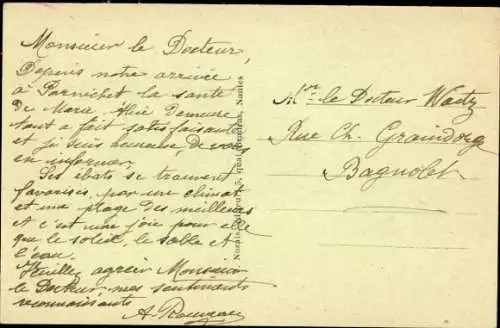 Monsieur le Docteur,
Depuis notre arrivée
à Pornichet la santé
de Marie demeure
tout a fait satisfaisante
et je suis heureuse de vous
en informer.
Ses ébats se trouvent
favorisés par un climat
et une plage des meilleurs
et c'est une joie pour elle
que le soleil, le sable et
l'eau.
Veuillez agréer Monsieur
le Docteur, mes sentiments
reconnaissants
A.
Nantes
Mr le Docteur
Rue Ch. Graindorge
Bagnolet